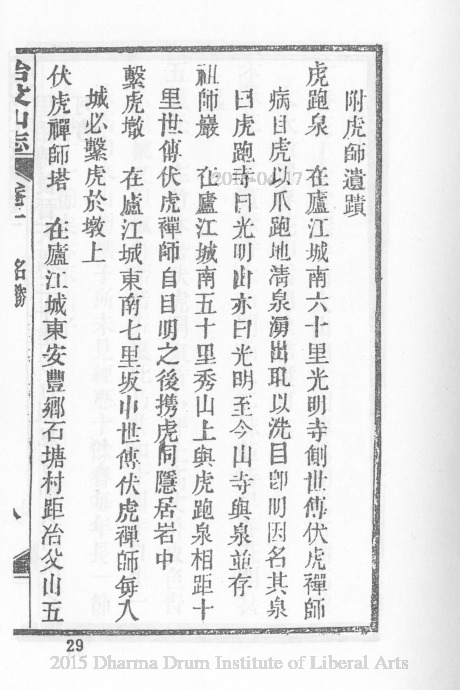 附虎師遺蹟
虎跑泉 在廬江城南六十里光明寺側世傳伏虎禪師
病目虎以爪跑地清泉湧出取以洗目卽明因名其泉
曰虎跑寺曰光明山亦曰光明至今山寺與泉並存
祖師巖 在廬江城南五十里秀山上與虎跑泉相距十
里世傳伏虎禪師自目明之後携虎同隱居岩中
繫虎墩 在廬江城東南七里坂中世傳伏虎禪師每入
城必繫虎於墩上
伏虎禪師塔 在廬江城東安豐鄉石塘村距冶父山五
冶父山志 卷一 名勝 八
29
2015 Dharma Drum Institute of Liberal Arts